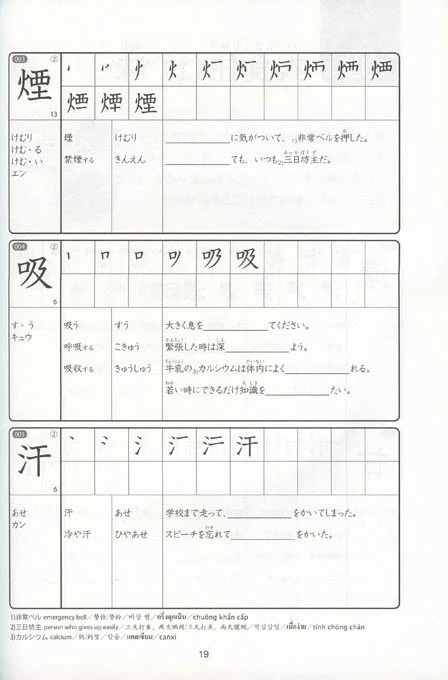 003 ②
煙
13
けむり
けむ・る
けむ・い
エン
煙 けむり ＿＿＿＿に気がついて、1)非常ベルを押した。
禁煙する きんえん ＿＿＿＿ても、いつも2)三日坊主だ。
004 ②
吸
6
す・う
キュウ
吸う すう 大きく息を＿＿＿＿てください。
呼吸する こきゅう 緊張した時は深＿＿＿＿よう。
吸収する きゅうしゅう 牛乳の3)カルシウムは体内によく＿＿＿＿れる。
若い時にできるだけ知識を＿＿＿＿たい。
005 ②
汗
6
あせ
カン
汗 あせ 学校まで走って、＿＿＿＿をかいてしまった。
冷や汗 ひやあせ スピーチを忘れて＿＿＿＿をかいた。
1)非常ベル emergency bell／警铃/警鈴／비상 벨／กริ่งฉุกเฉิน／chuông khẩn cấp
2)三日坊主 person who gives up easily／三天打鱼、两天晒网/三天打魚、兩天曬網／작심삼일／เบื่อง่าย／tính chóng chán
3)カルシウム calcium／钙/鈣質／칼슘／แคลเซียม／canxi
19